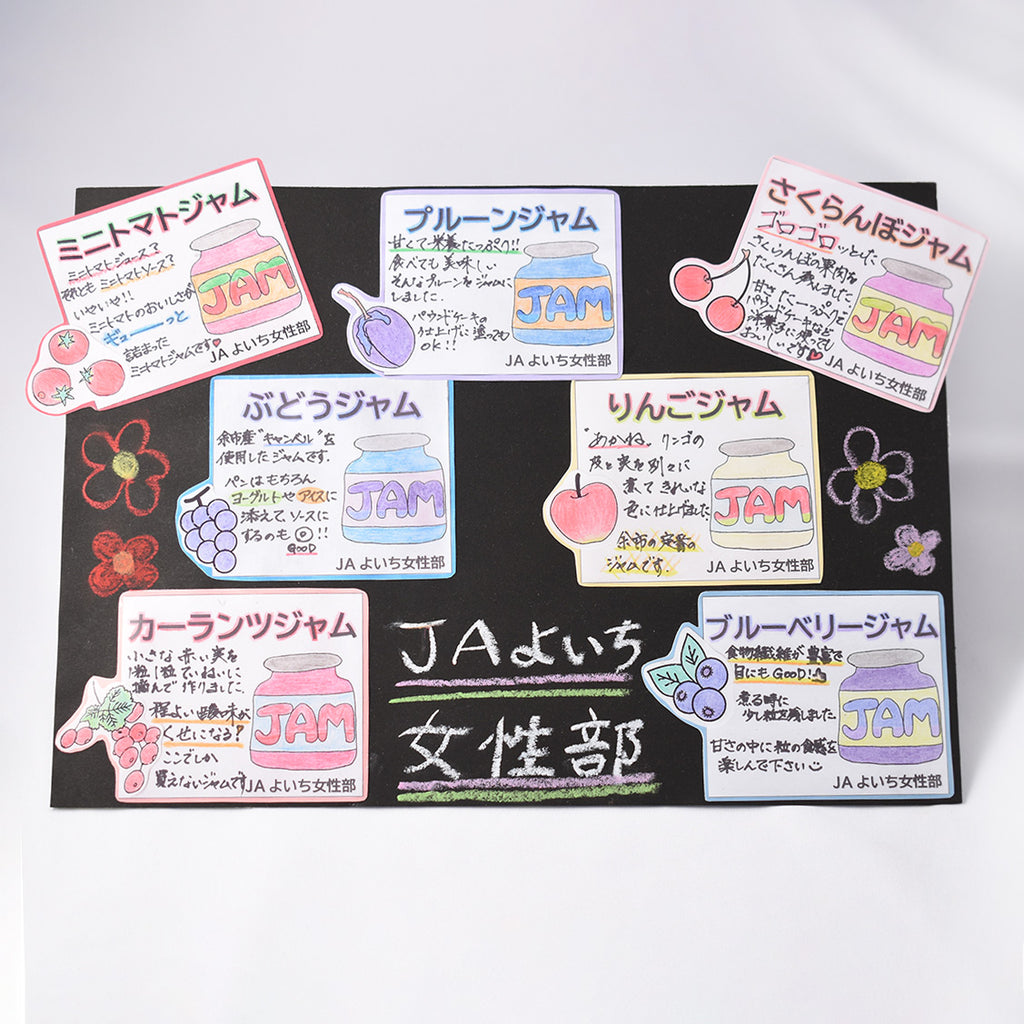 ミニトマトジャム
ミニトマトジュース?
それとも ミニトマトソース?
いやいや!!
ミニトマトのおいしさが
ギューーっと
詰まった
ミニトマトジャムです♥
JAM
JA よいち女性部
プルーンジャム
甘くて栄養たっぷり!!
食べても美味しい
そんなプルーンをジャムに
しました.
パウンドケーキの
仕上げに塗っても
OK!!
JAM
JA よいち女性部
さくらんぼジャム
ゴロゴロッとした
さくらんぼの果肉を
たくさん残しました.
甘さたーっぷりで
パウンドケーキなど
お菓子に使っても
おいしいです♥
JAM
JA よいち女性部
ぶどうジャム
余市産"キャンベル"を
使用したジャムです.
パンはもちろん
ヨーグルトやアイスに
添えて、ソースに
するのも◎!!
GOOD
JAM
JA よいち女性部
りんごジャム
"あかね"リンゴの
皮と実を別々に
煮てきれいな
色に仕上げました
余市の定番の
ジャムです.
JAM
JA よいち女性部
カーランツジャム
小さな赤い実を
1粒1粒ていねいに
摘んで作りました.
程よい酸味が
くせになる?
ここでしか
買えないジャムです
JAM
JA よいち女性部
JAよいち
女性部
ブルーベリージャム
食物繊維が豊富で
目にもGOOD!
煮る時に
少し粒を残しました.
甘さの中に粒の食感を
楽しんで下さい
JAM
JA よいち女性部